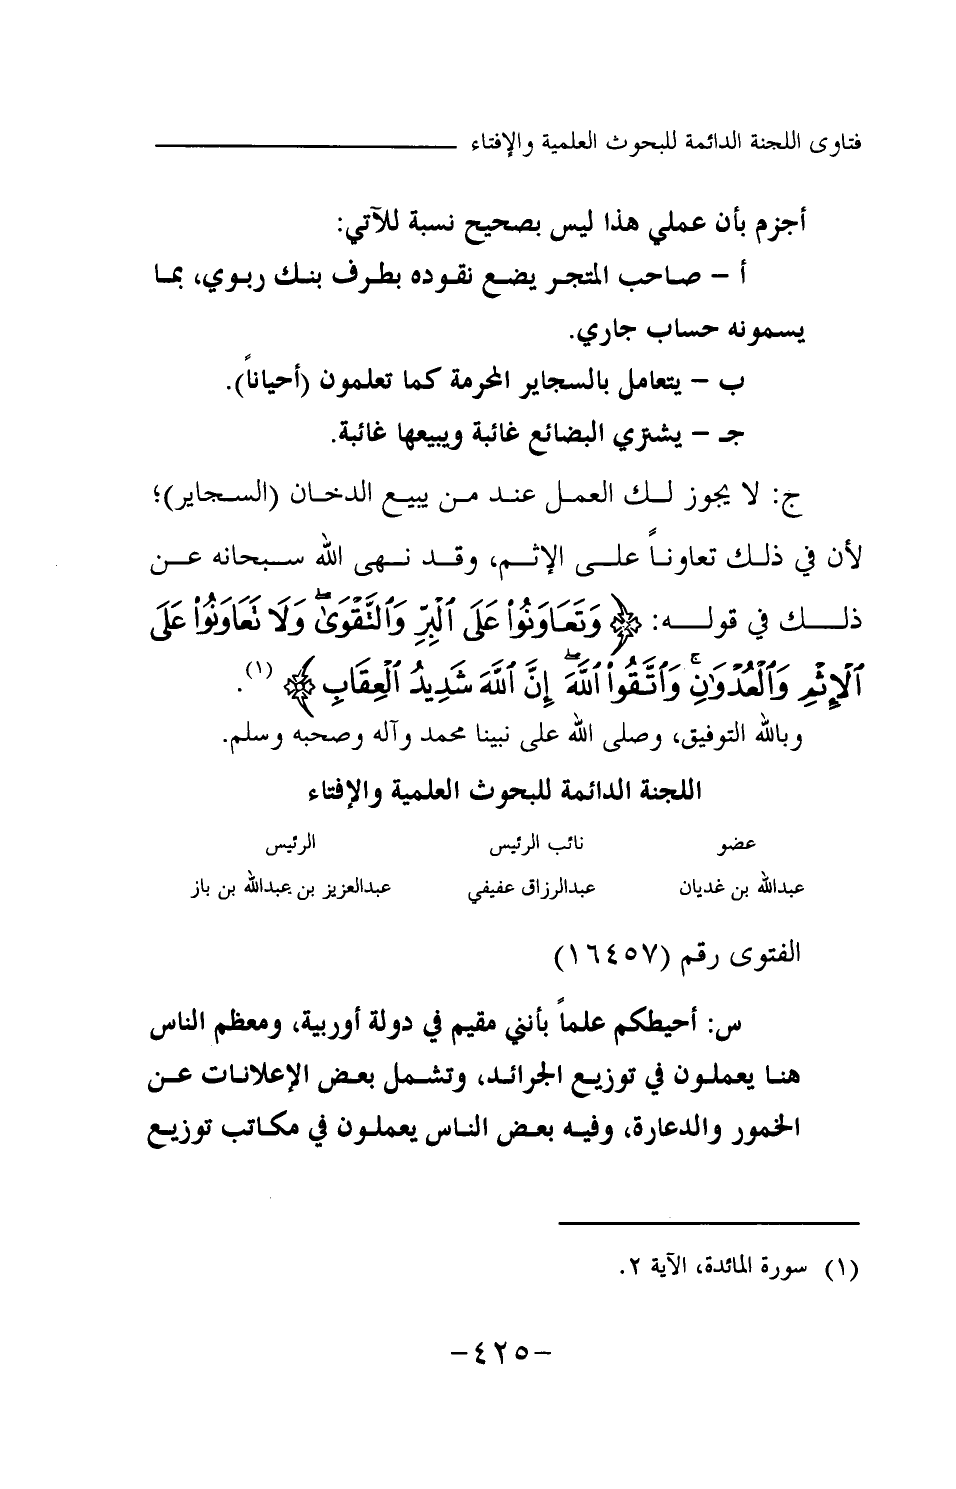 فتاوى اللجنة الدائمة للبحوث العلمية والإفتاء
أجزم بأن عملي هذا ليس بصحيح نسبة للآتي:
أ – صاحب المتجر يضع نقوده بطرف بنك ربوي، بما
يسمونه حساب جاري.
ب – يتعامل بالسجاير المحرمة كما تعلمون (أحياناً).
جـ – يشتري البضائع غائبة ويبيعها غائبة.
ج: لا يجوز لك العمل عند من يبيع الدخان (السجاير)؛
لأن في ذلك تعاوناً على الإثم، وقد نهى الله سبحانه عن
ذلك في قوله: ﴿ وَتَعَاوَنُوا۟ عَلَى ٱلْبِرِّ وَٱلتَّقْوَىٰ ۖ وَلَا تَعَاوَنُوا۟ عَلَى
ٱلْإِثْمِ وَٱلْعُدْوَٰنِ ۚ وَٱتَّقُوا۟ ٱللَّهَ ۖ إِنَّ ٱللَّهَ شَدِيدُ ٱلْعِقَابِ ﴾ (١).
وبالله التوفيق، وصلى الله على نبينا محمد وآله وصحبه وسلم.
اللجنة الدائمة للبحوث العلمية والإفتاء
عضو نائب الرئيس الرئيس
عبدالله بن غديان عبدالرزاق عفيفي عبدالعزيز بن عبدالله بن باز
الفتوى رقم (١٦٤٥٧)
س: أحيطكم علماً بأنني مقيم في دولة أوربية، ومعظم الناس
هنا يعملون في توزيع الجرائد، وتشمل بعض الإعلانات عن
الخمور والدعارة، وفيه بعض الناس يعملون في مكاتب توزيع
(١) سورة المائدة، الآية ٢.
–٤٢٥–